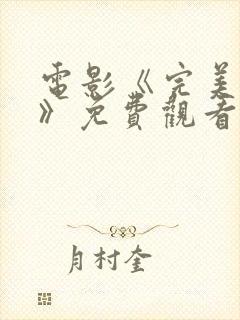 電影《完美
》免費觀看
月村奎